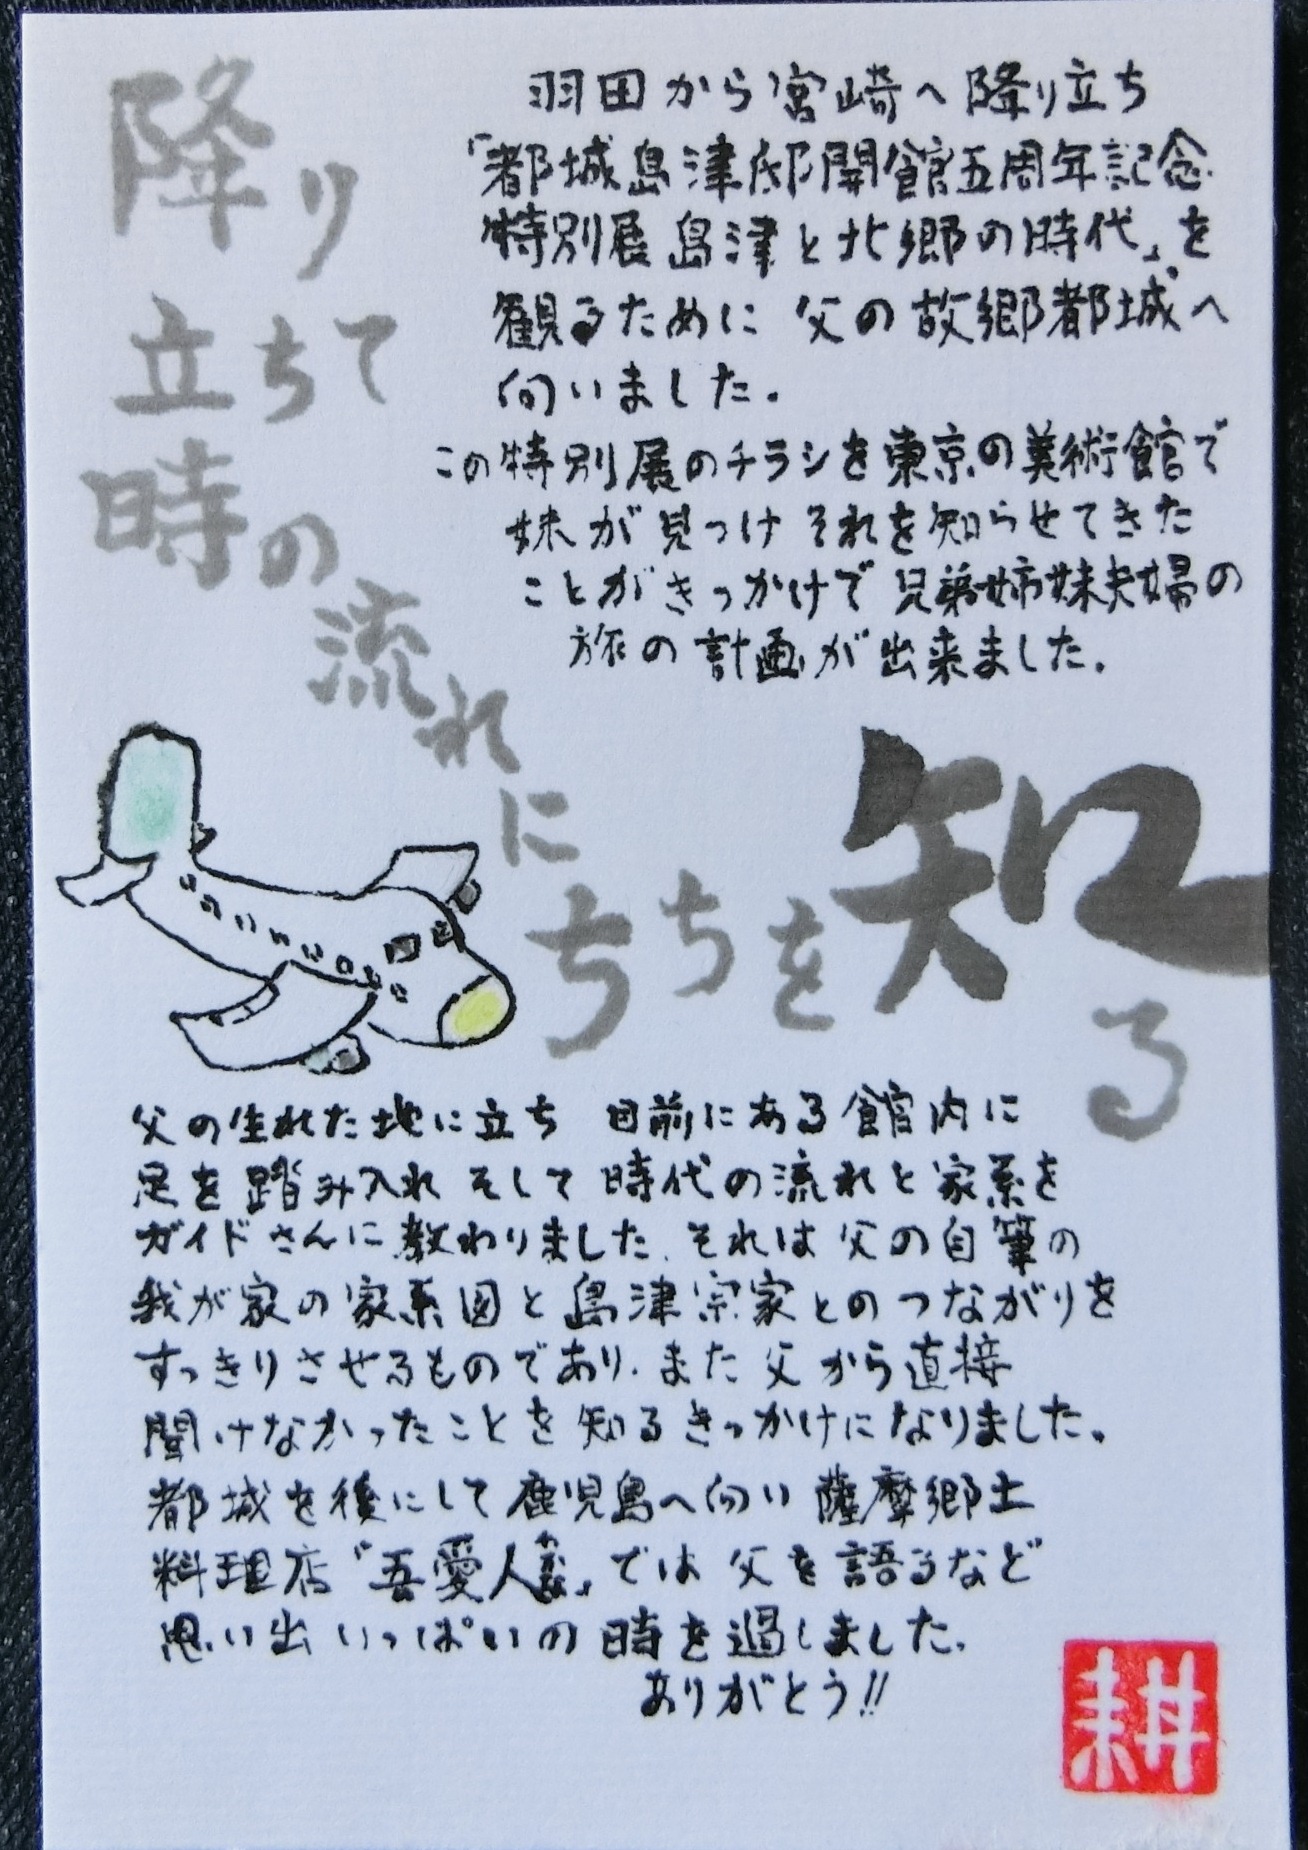 降り
立ちて
時の
流れ
に
ちちを知る
羽田から宮崎へ降り立ち
「都城島津邸開館五周年記念
特別展島津と北郷の時代」を
観るために 父の故郷都城へ
向いました。
この特別展のチラシを東京の美術館で
妹が見つけ それを知らせてきた
ことがきっかけで 兄弟姉妹夫婦の
旅の計画が出来ました。
父の生れた地に立ち 目前にある館内に
足を踏み入れ そして 時代の流れと家系を
ガイドさんに教わりました。それは父の自筆の
我が家の家系図と島津宗家とのつながりを
すっきりさせるものであり、また父から直接
聞けなかったことを知るきっかけになりました。
都城を後にして鹿児島へ向い 薩摩郷土
料理店「吾愛人」では 父を語るなど
思い出いっぱいの時を過しました。
ありがとう!!
耕